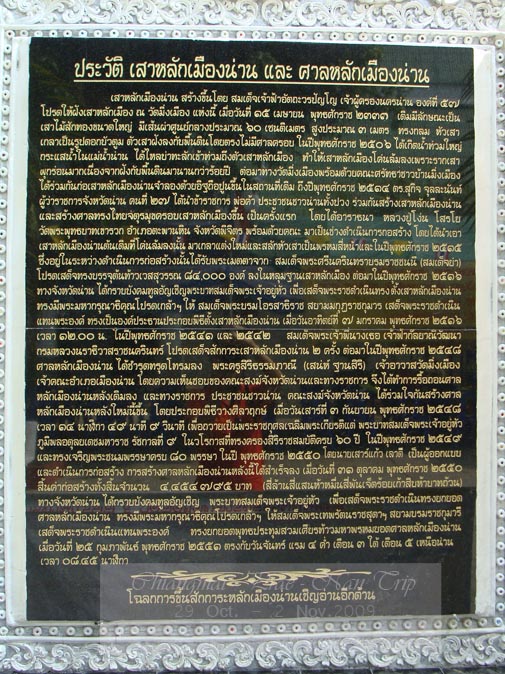 ประวัติ เสาหลักเมืองน่าน และ ศาลหลักเมืองน่าน
เสาหลักเมืองน่าน สร้างขึ้นโดย สมเด็จเจ้าฟ้าอัตถะวรปัญโญ เจ้าผู้ครองนครน่าน องค์ที่ ๕๗
โปรดให้ฝังเสาหลักเมือง ณ วัดมิ่งเมือง แห่งนี้ เมื่อวันที่ ๑๕ เมษายน พุทธศักราช ๒๓๓๑ เดิมมีลักษณะเป็น
เสาไม้สักทองขนาดใหญ่ มีเส้นผ่าศูนย์กลางประมาณ ๖๐ เซนติเมตร สูงประมาณ ๓ เมตร ทรงกลม หัวเสา
เกลาเป็นรูปดอกบัวตูม ตัวเสาฝังลงกับพื้นดินโดยตรงไม่มีศาลครอบ ในปีพุทธศักราช ๒๕๐๖ ได้เกิดน้ำท่วมใหญ่
กระแสน้ำในแม่น้ำน่าน ได้ไหลบ่าทะลักเข้าท่วมถึงตัวเสาหลักเมือง ทำให้เสาหลักเมืองโค่นล้มลงเพราะรากเสา
ผุกร่อนมากเนื่องจากฝังกับพื้นดินมานานกว่าร้อยปี ต่อมาทางวัดมิ่งเมืองพร้อมด้วยคณะศรัทธาชาวบ้านมิ่งเมือง
ได้ร่วมกันก่อเสาหลักเมืองน่านจำลองด้วยอิฐถือปูนขึ้นในสถานที่เดิม ถึงปีพุทธศักราช ๒๕๑๔ ดร.สุกิจ จุลละนันท์
ผู้ว่าราชการจังหวัดน่าน คนที่ ๒๗ ได้นำข้าราชการ พ่อค้า ประชาชนชาวน่านทั้งปวง ร่วมกันสร้างเสาหลักเมืองน่าน
และสร้างศาลทรงไทยจัตุรมุขครอบเสาหลักเมืองขึ้น เป็นครั้งแรก โดยได้อาราธนา หลวงปู่โง่น โสรโย
วัดพระพุทธบาทเขารวก อำเภอตะพานหิน จังหวัดพิจิตร พร้อมด้วยคณะ มาเป็นช่างดำเนินการก่อสร้าง โดยได้นำเอา
เสาหลักเมืองน่านต้นเดิมที่โค่นล้มลงนั้น มาเกลาแต่งใหม่และสลักหัวเสาเป็นพรหมสี่หน้า และในปีพุทธศักราช ๒๕๑๕
ซึ่งอยู่ในระหว่างดำเนินการก่อสร้างนั้นได้รับพระเมตตาจาก สมเด็จพระศรีนครินทราบรมราชชนนี (สมเด็จย่า)
โปรดเสด็จทรงบรรจุต้นท้าวเวสสุวรรณ ๘๔,๐๐๐ องค์ ลงในหลุมฐานเสาหลักเมือง ต่อมาในปีพุทธศักราช ๒๕๑๖
ทางจังหวัดน่าน ได้กราบบังคมทูลอัญเชิญพระบาทสมเด็จพระเจ้าอยู่หัว เพื่อเสด็จพระราชดำเนินทรงตั้งเสาหลักเมืองน่าน
ทรงมีพระมหากรุณาธิคุณโปรดเกล้าฯ ให้ สมเด็จพระบรมโอรสาธิราช สยามมกุฎราชกุมาร เสด็จพระราชดำเนิน
แทนพระองค์ ทรงเป็นองค์ประธานประกอบพิธีตั้งเสาหลักเมืองน่าน เมื่อวันอาทิตย์ที่ ๗ มกราคม พุทธศักราช ๒๕๑๖
เวลา ๑๒.๐๐ น. ในปีพุทธศักราช ๒๕๔๑ และ ๒๕๔๒ สมเด็จพระเจ้าพี่นางเธอ เจ้าฟ้ากัลยาณิวัฒนา
กรมหลวงนราธิวาสราชนครินทร์ โปรดเสด็จสักการะเสาหลักเมืองน่าน ๒ ครั้ง ต่อมาในปีพุทธศักราช ๒๕๔๘
ศาลหลักเมืองน่าน ได้ชำรุดทรุดโทรมลง พระครูสิริธรรมภาณี (เสน่ห์ ฐานสิริ) เจ้าอาวาสวัดมิ่งเมือง
เจ้าคณะอำเภอเมืองน่าน โดยความเห็นชอบของคณะสงฆ์จังหวัดน่านและทางราชการ จึงได้ทำการรื้อถอนศาล
หลักเมืองน่านหลังเดิมลง และทางราชการ ประชาชนชาวน่าน คณะสงฆ์จังหวัดน่าน ได้ร่วมใจกันสร้างศาล
หลักเมืองน่านหลังใหม่นี้ขึ้น โดยประกอบพิธีวางศิลาฤกษ์ เมื่อวันเสาร์ที่ ๓ กันยายน พุทธศักราช ๒๕๔๘
เวลา ๑๔ นาฬิกา ๔๙ นาที ๙ วินาที เพื่อถวายเป็นพระราชกุศลเฉลิมพระเกียรติแด่ พระบาทสมเด็จพระเจ้าอยู่หัว
ภูมิพลอดุลยเดชมหาราช รัชกาลที่ ๙ ในวโรกาสที่ทรงครองสิริราชสมบัติครบ ๖๐ ปี ในปีพุทธศักราช ๒๕๔๙
และทรงเจริญพระชนมพรรษาครบ ๘๐ พรรษา ในปี พุทธศักราช ๒๕๕๐ โดยนายเสาร์แก้ว เลาดี เป็นผู้ออกแบบ
และดำเนินการก่อสร้าง การสร้างศาลหลักเมืองน่านหลังนี้ได้สำเร็จลง เมื่อวันที่ ๓๑ ตุลาคม พุทธศักราช ๒๕๕๐
สิ้นค่าก่อสร้างทั้งสิ้นจำนวน ๔,๔๕๔,๗๙๕ บาท (สี่ล้านสี่แสนห้าหมื่นสี่พันเจ็ดร้อยเก้าสิบห้าบาทถ้วน)
ทางจังหวัดน่าน ได้กราบบังคมทูลอัญเชิญ พระบาทสมเด็จพระเจ้าอยู่หัว เพื่อเสด็จพระราชดำเนินทรงยกยอด
ศาลหลักเมืองน่าน ทรงมีพระมหากรุณาธิคุณโปรดเกล้าฯ ให้สมเด็จพระเทพรัตนราชสุดาฯ สยามบรมราชกุมารี
เสด็จพระราชดำเนินแทนพระองค์ ทรงยกยอดพุทธปทุมสวมเศียรท้าวมหาพรหมยอดศาลหลักเมืองน่าน
เมื่อวันที่ ๒๕ กุมภาพันธ์ พุทธศักราช ๒๕๕๑ ตรงกับวันจันทร์ แรม ๔ ค่ำ เดือน ๓ ใต้ เดือน ๕ เหนือน่าน
เวลา ๐๘.๔๕ นาฬิกา
Chiangmai - Nan Trip
โฉลกการขึ้นสักการะหลักเมืองน่านเชิญอ่านอีกด้าน
29 Oct. - 2 Nov.2009